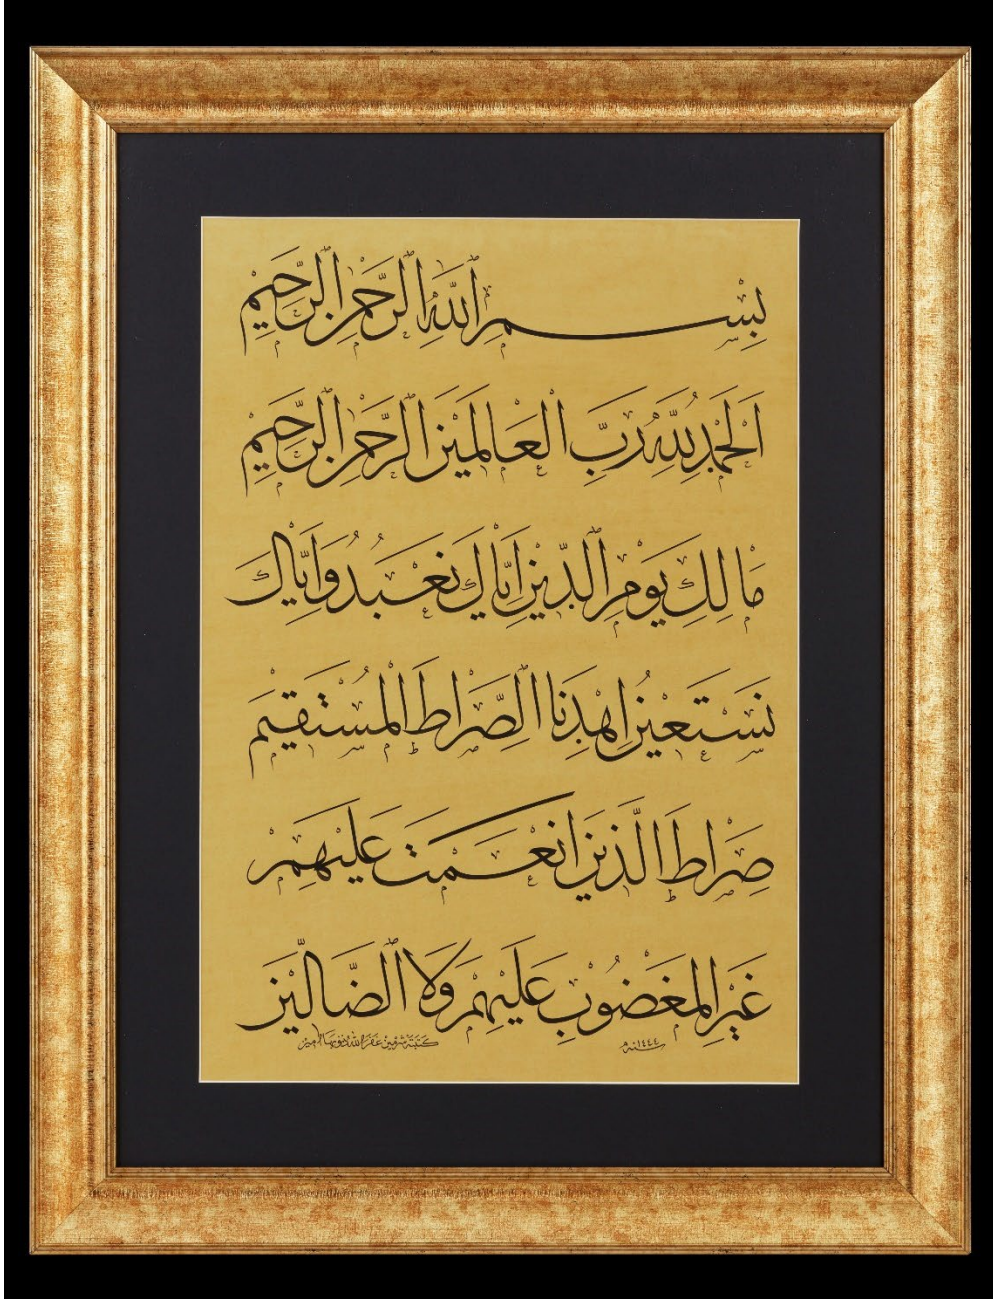 بِسْمِ اللَّهِ الرَّحْمَنِ الرَّحِيمِ
اَلْحَمْدُ لِلَّهِ رَبِّ الْعَالَمِينَ الرَّحْمَنِ الرَّحِيمِ
مَالِكِ يَوْمِ الدِّينِ اِيَّاكَ نَعْبُدُ وَاِيَّاكَ
نَسْتَعِينُ اِهْدِنَا الصِّرَاطَ الْمُسْتَقِيمَ
صِرَاطَ الَّذِينَ اَنْعَمْتَ عَلَيْهِمْ
غَيْرِ الْمَغْضُوبِ عَلَيْهِمْ وَلَا الضَّالِّينَ
سنه ١٤٤٤
كتبته غفر الله ذنوبها امين